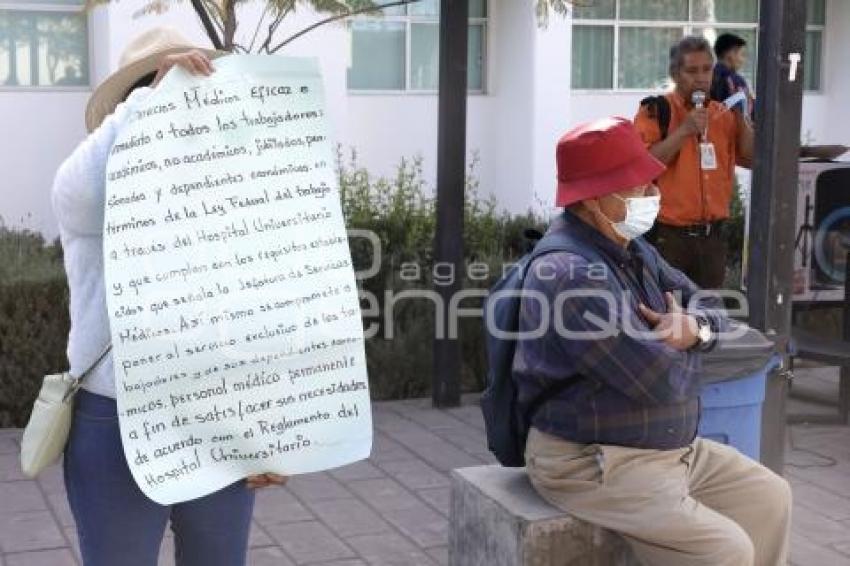 servicios Médicos Eficaz e
inmediato a todos los trabajadores:
académicos, no académicos, jubilados, pen-
sionados y dependientes económicos, en
términos de la Ley Federal del trabajo
a través del Hospital Universitario
y que cumplan con los requisitos estable-
cidos que señala la Jefatura de Servicios
Médicos. Así mismo se compromete a
poner al servicio exclusivo de los tra-
bajadores y de sus dependientes econó-
micos, personal médico permanente
a fin de satisfacer sus necesidades
de acuerdo con el Reglamento del
Hospital Universitario.
agencia
enfoque